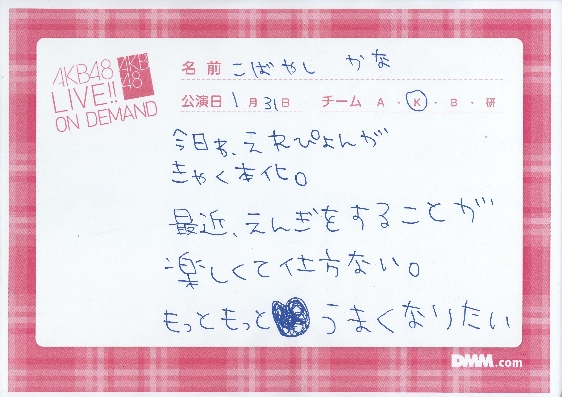 AKB48
LIVE!!
ON DEMAND
AKB
48
名前 こばやし かな
公演日 1月31日 チーム A・K・B・研
今日も、えれぴょんが
きゃく本化。
最近、えんぎをすることが
楽しくて仕方ない。
もっともっと うまくなりたい
DMM.com